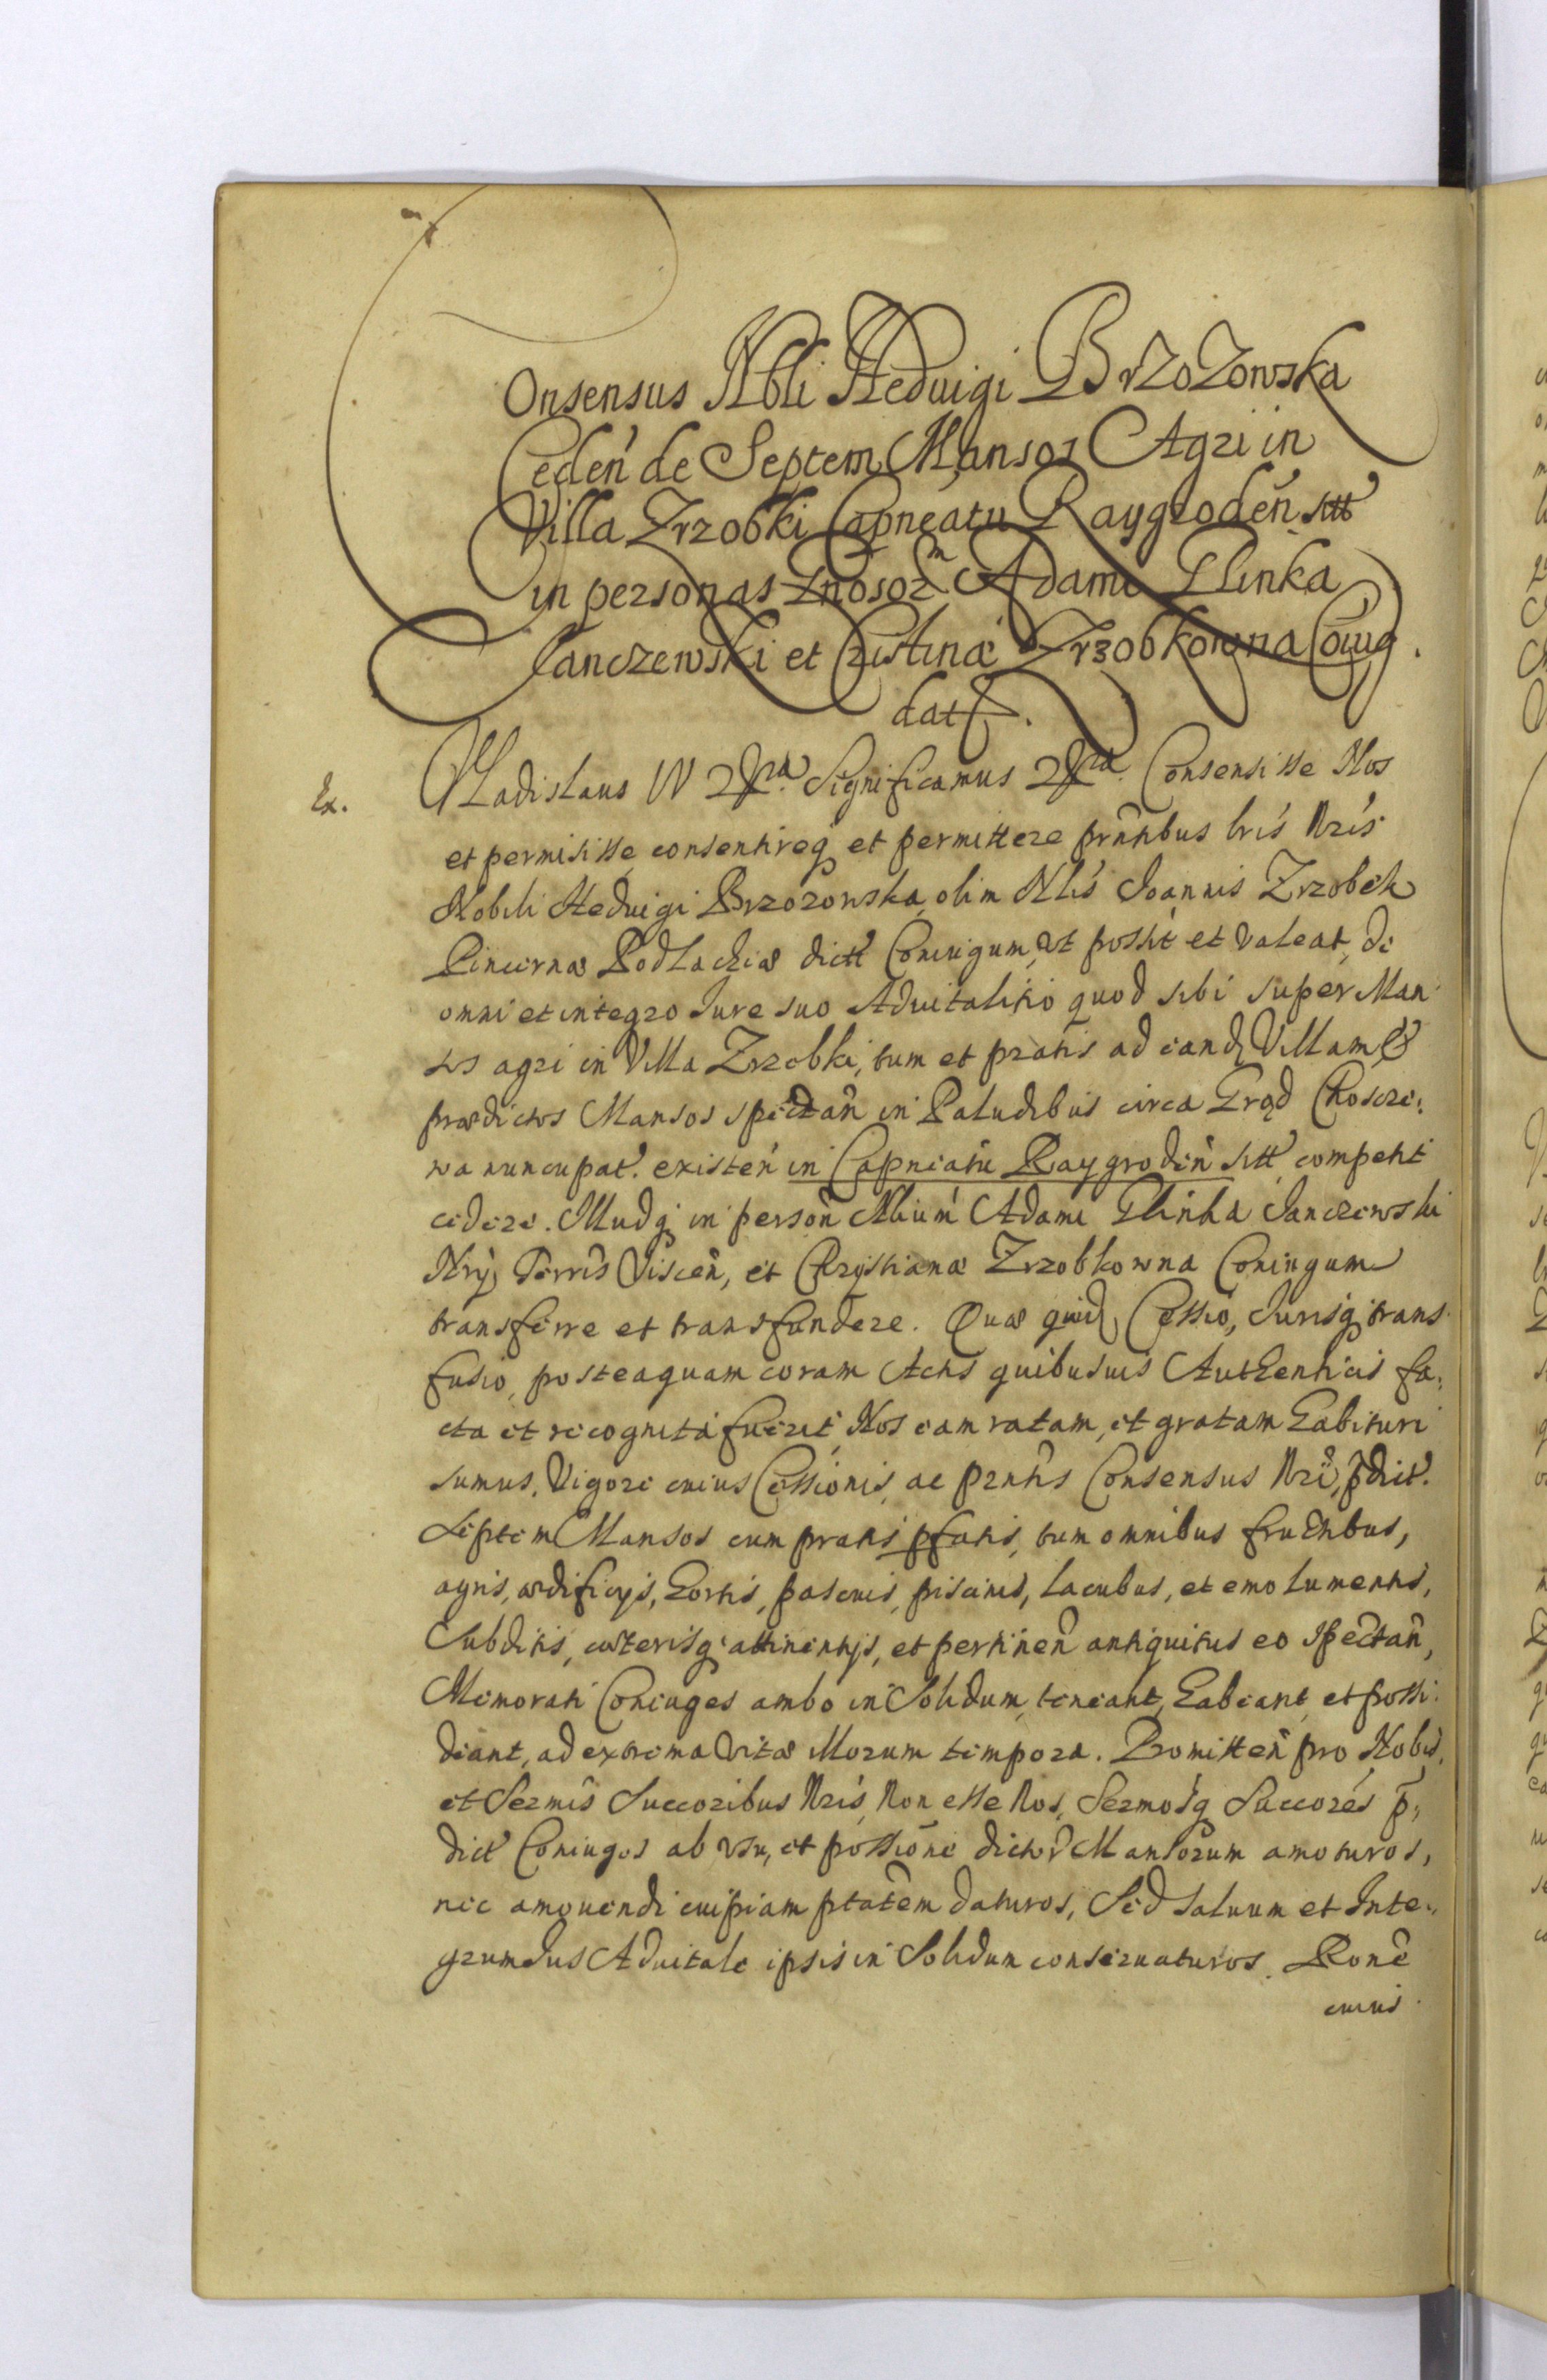 Consensus Nbli Heduigi Brzozowska
Ceden̄ de Septem Mansos Agri in
Villa Zrzobki Capneatu Raygroden̄ sitt
in personas Gnosor̄m Adami Glinka
Janczewski et Cristinæ Zrzobkowna Coiug.
datt.
Ex.
Vladislaus IV &c̄ra. Significamus &c̄ra. Consensisse Nos
et permisisse, consentireq et permittere prñtibus lrīs Nrīs
Nobili Heduigi Brzozowska, olim Nlis Joannis Zrzobek
Pincernæ Podlachiæ dictt Coniugum, Vt possit et valeat, de
omni et integro Jure suo Aduitalitio quod sibi super Man
sos agri in Villa Zrzobki, tum et pratis ad eand Villam &
prædictos Mansos spectan̄ in Paludibus circa Grąd Choscze:
wa nuncupat. existen̄ in Capneatu Raygroden̄ sitt competit
cedere. Illudq in person̄ Nlium Adami Glinka Janczewski
Nrij Terris Viscen̄, et Chrystianæ Zrzobkowna Coniugum
transferre et transfundere. Quæ quid Cessio, Jurisq trans
fusio, posteaquam coram Actis quibusuis Authenticis fa:
cta et recognita fuerit, Nos eam ratam, et gratam habituri
sumus. Vigore cuius Cessionis, ac prñtis Consensus Nrī, p̄dict.
Septem Mansos cum pratis pfatis, tum omnibus fructibus,
agris, ædificijs, hortis, pascuis, piscinis, lacubus, et emolumentis,
Subditis, cæterisq attinentijs, et pertinen̄ antiquitus eo spectan̄,
Memorati Coniuges ambo in Solidum, teneant, habeant, et possi:
deant, ad extrema Vitæ suorum tempora. Promitten̄ pro Nobis,
et Sermis Succoribus Nrīs, Non esse Nos, Sermosq Succores p̄:
dict Coniuges ab vsu, et possione dictor Mansorum amoturos,
nec amouendi cuipiam ptatem daturos, Sed saluum et Inte:
grum Jus Aduitale ipsis in Solidum conseruaturos. Rone
cuius